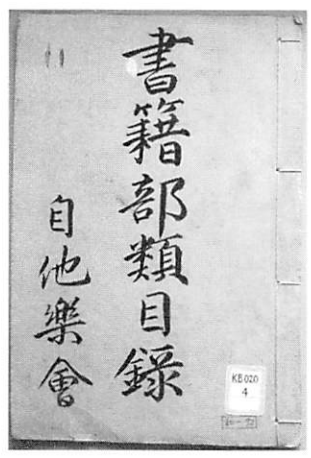 書籍部類目録
自他樂會
KB020
4